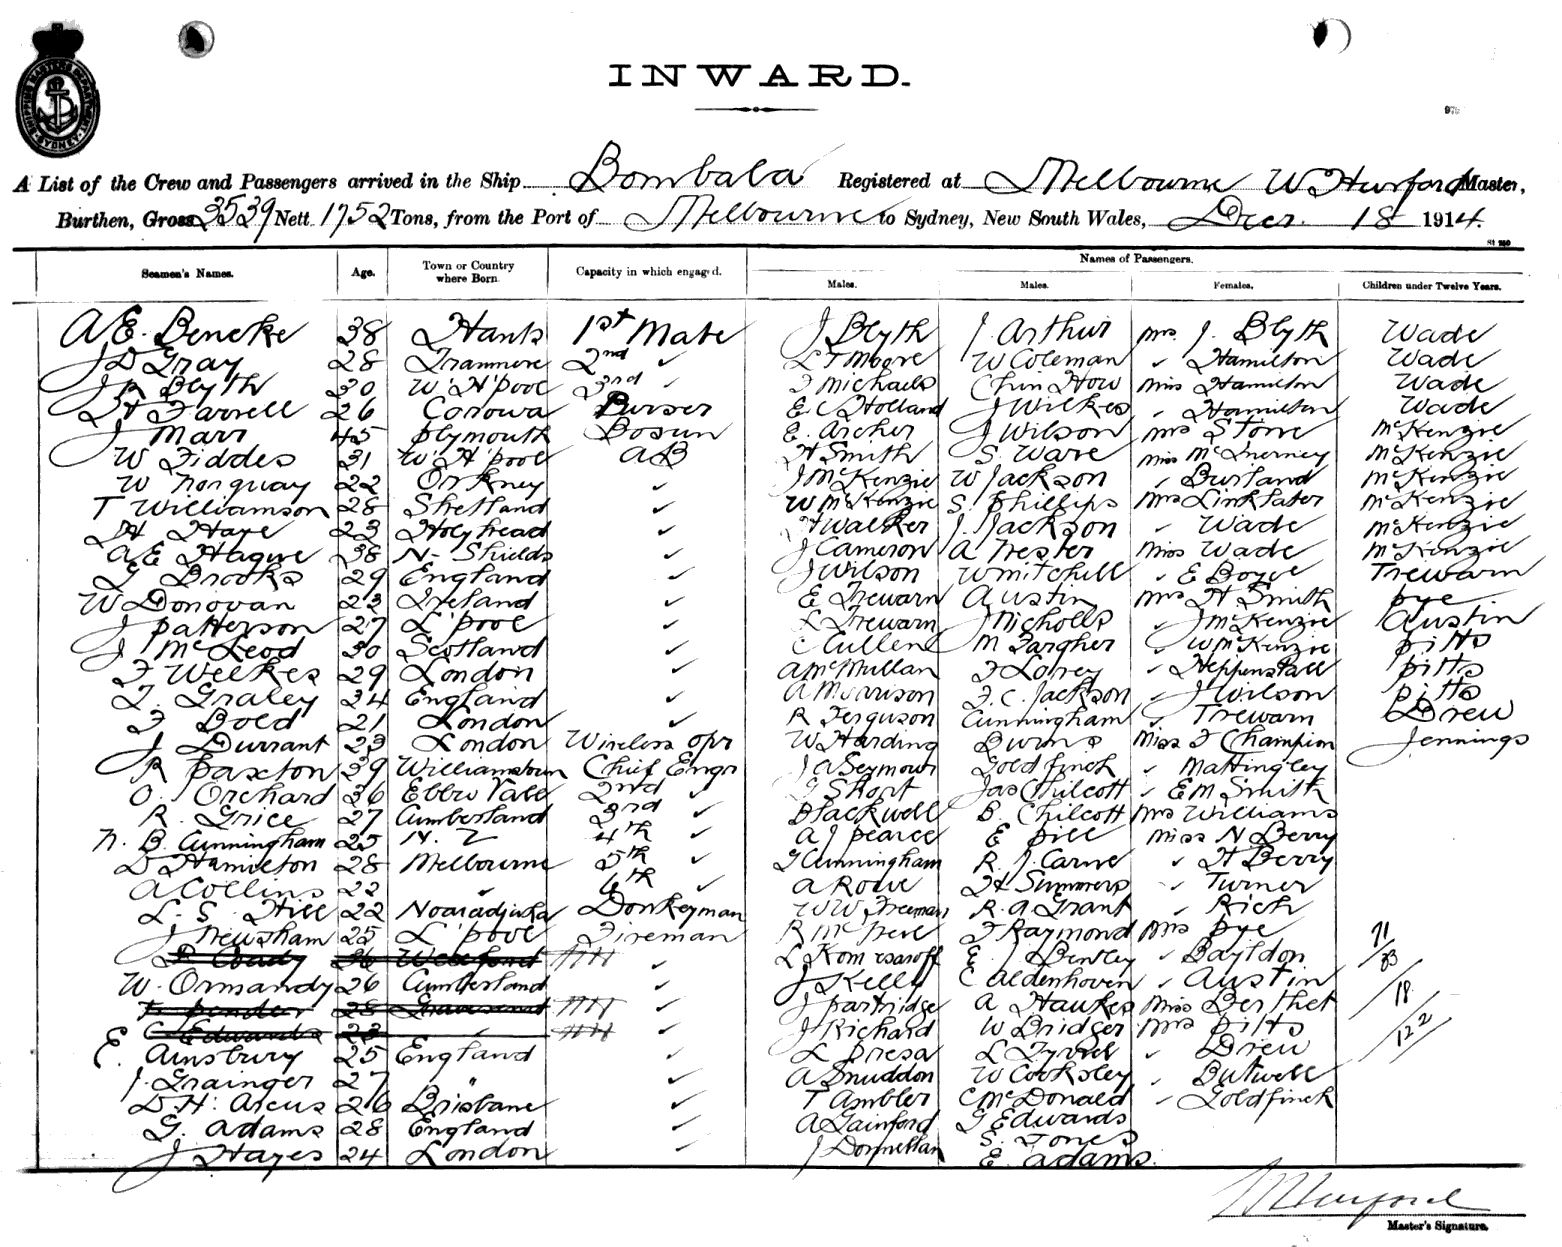 SHIPPING MASTERS DEPARTMENT SYDNEY
INWARD.
A List of the Crew and Passengers arrived in the Ship Bombala Registered at Melbourne W Hurford Master,
Burthen, Gross 3539 Nett 1752 Tons, from the Port of Melbourne to Sydney, New South Wales, Decr. 18 1914.
Seamen's Names. Age. Town or Country where Born. Capacity in which engaged. Names of Passengers.
Males. Males. Females. Children under Twelve Years.
A E. Beneke 38 Hants 1st Mate J Blyth J. Arthur Mrs J. Blyth Wade
J D Gray 28 Tranmere 2nd ✓ L T Moore W Coleman " Hamilton Wade
J R Blyth 30 W. H'pool 3rd ✓ F Michaels Chin How Miss Hamilton Wade
H Farrell 26 Corowa Purser E C Holland J Wilkes " Hamilton Wade
J Marr 45 Plymouth Bosun E. Archer J Wilson Mrs Stone McKenzie
W Fiddes 31 W H'pool AB H Smith S. Ware Miss McInerney McKenzie
W Norquay 22 Orkney ✓ J McKenzie W Jackson " Burland McKenzie
T Williamson 28 Shetland ✓ W McKenzie S. Phillips Mrs Linklater McKenzie
H Haye 23 Holyhead ✓ H Walker J. Jackson " Wade McKenzie
A E Hague 38 N- Shields ✓ J Cameron A Trester Miss Wade McKenzie
G Brooks 29 England ✓ J Wilson W Mitchell " E Boyce Trewarn
W Donovan 23 Ireland ✓ E Trewarn Austin Mrs H Smith Pye
J Patterson 27 L'pool ✓ L Trewarn J Nicholls " J McKenzie Austin
J McLeod 30 Scotland ✓ C Cullen M Fargher " W McKenzie Pitts
F Welkes 29 London ✓ A McMullan F Lorey " Heppenstall Pitts
T. Graley 34 England ✓ A Morrison F. C. Jackson " J Wilson Pitts
F Bold 21 London ✓ R Ferguson Cunningham " Trewarn Drew
J. Durrant 23 London Wireless Opr W Harding Burns Miss F Champion Jennings
R Paxton 39 Williamstown Chief Engr J A Seymour Goldfinch " Mattingley
O. Orchard 36 Ebbw Vale 2nd ✓ G Short Jas Chilcott " E M Smith
R. Grice 27 Cumberland 3rd ✓ Blackwell B. Chilcott Mrs Williams
N. B. Cunningham 25 N. Z 4th ✓ A J Pearce E Pill Miss N Berry
D Hamilton 28 Melbourne 5th ✓ G Cunningham R. J. Carne " H Berry
A Collins 22 " 6th ✓ A Rowe H Summers " Turner
L. S. Hill 22 Donkeyman W W Freeman R. A Grant " Rich
J Newsham 25 L'pool Fireman F Raymond Mrs Pye 71
D Coady 36 Wexford ✓ E J Bentley " Bayldon 33
W. Ormandy 26 Cumberland ✓ J Kelly C Aldenhoven " Austin 18
F Pender 28 Gravesend ✓ J Partridge A Hawkes Miss Berthet
C Edwards 23 " J Richard W Bridger Mrs Pitts 122
E. Ainsbury 25 England ✓ L Presa L Tyrrel " Drew
J. Grainger 27 " ✓ A Snuddon W Cooksley " Butwell
D. H. Arcus 26 Brisbane ✓ T Ambler C McDonald " Goldfinch
G. Adams 28 England ✓ A Gainford G Edwards
J Hayes 24 London ✓ J Donnellan S. Jones
E Adams.
W Hurford
Master's Signature.